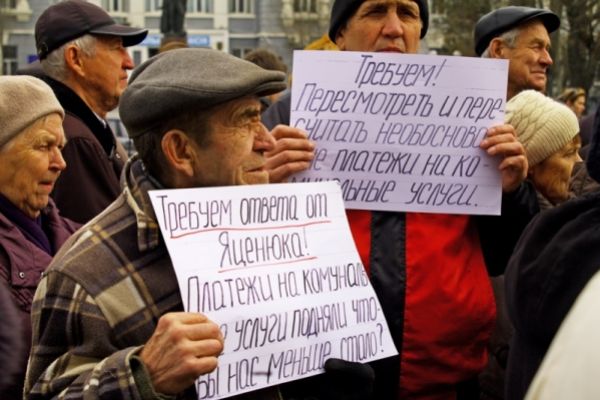 Требуем!
Пересмотреть и пере-
считать необоснов
е платежи на ко
нальные услуги.
Требуем ответа от
Яценюка!
Платежи на комуналь
услуги подняли что-
бы нас меньше стало?